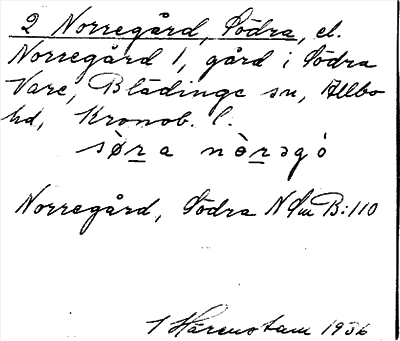 2 Norregård, Södra, el.
Norregård 1, gård i Södra
Vare, Blädinge sn, Allbo
hd, Kronob. l.
sø̀ra nòrəgó
Norregård, Södra NSm B:110
Härenstam 1936